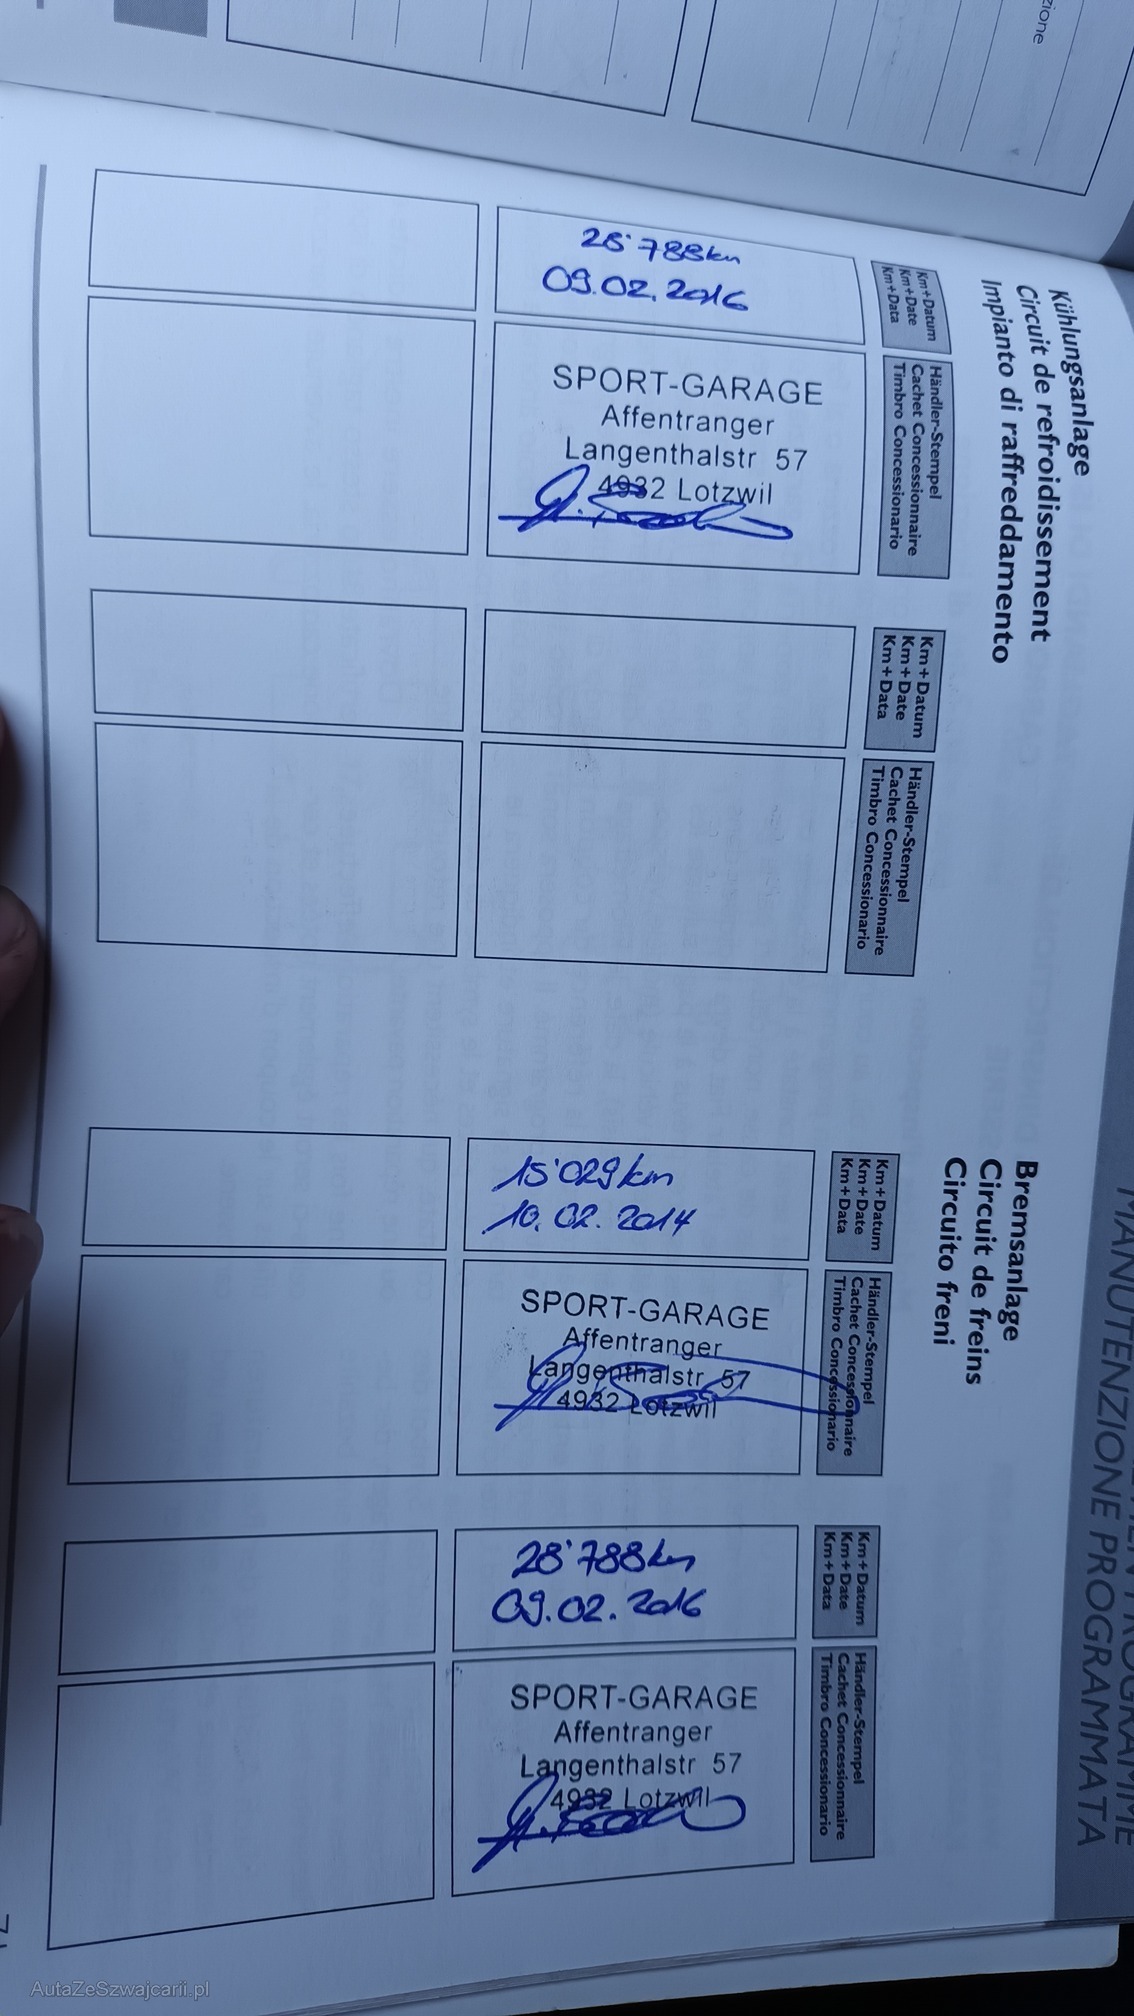 zione
MANUTENZIONE PROGRAMMATA
Kühlungsanlage
Circuit de refroidissement
Impianto di raffreddamento
Km+Datum
Km+Date
Km+Data
Händler-Stempel
Cachet Concessionnaire
Timbro Concessionario
28'788km
09.02.2016
SPORT-GARAGE
Affentranger
Langenthalstr 57
4932 Lotzwil
Km+Datum
Km+Date
Km+Data
Händler-Stempel
Cachet Concessionnaire
Timbro Concessionario
Bremsanlage
Circuit de freins
Circuito freni
Km+Datum
Km+Date
Km+Data
Händler-Stempel
Cachet Concessionnaire
Timbro Concessionario
15'029km
10.02.2014
SPORT-GARAGE
Affentranger
Langenthalstr 57
4932 Lotzwil
Km+Datum
Km+Date
Km+Data
Händler-Stempel
Cachet Concessionnaire
Timbro Concessionario
28'788km
09.02.2016
SPORT-GARAGE
Affentranger
Langenthalstr 57
4932 Lotzwil
AutaZeSzwajcarii.pl